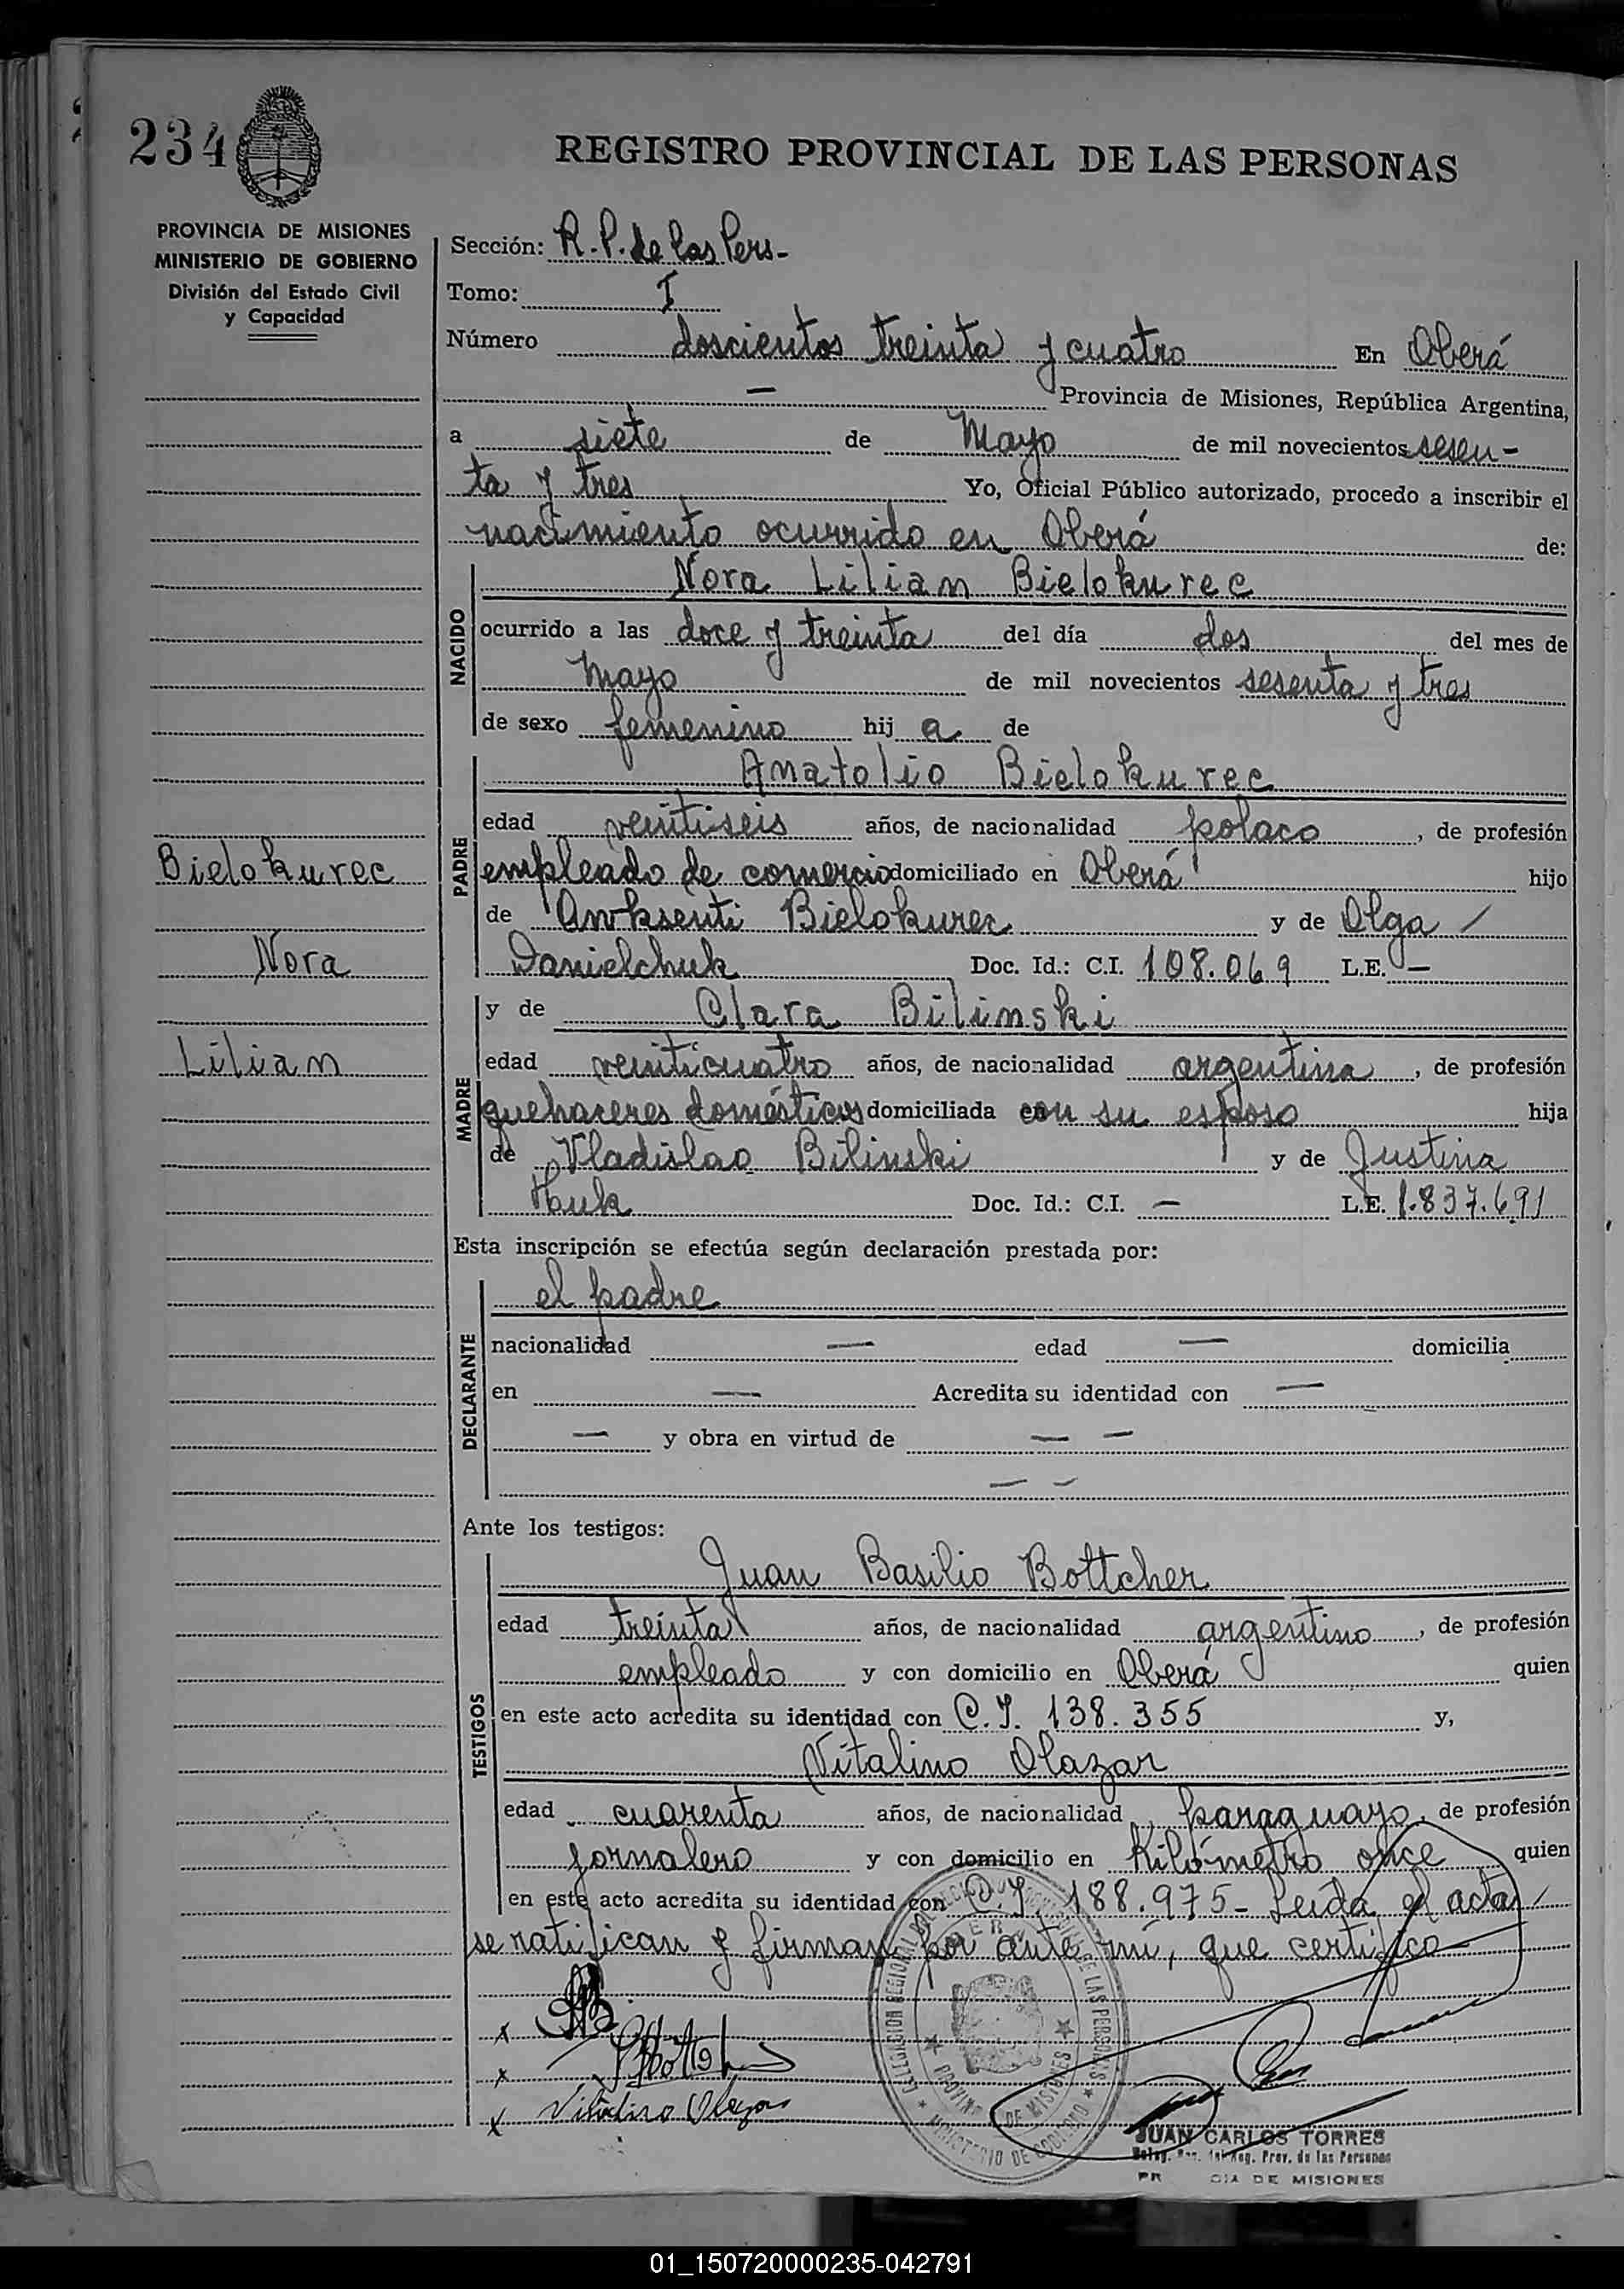 234
REGISTRO PROVINCIAL DE LAS PERSONAS
PROVINCIA DE MISIONES
MINISTERIO DE GOBIERNO
División del Estado Civil
y Capacidad
Sección: R. P. de las Pers-
Tomo: I
Número doscientos treinta y cuatro En Oberá
— Provincia de Misiones, República Argentina,
a siete de Mayo de mil novecientos sesen-
ta y tres Yo, Oficial Público autorizado, procedo a inscribir el
nacimiento ocurrido en Oberá de:
NACIDO
Nora Lilian Bielokurec
ocurrido a las doce y treinta del día dos del mes de
Mayo de mil novecientos sesenta y tres
de sexo femenino hij a de
PADRE
Anatolio Bielokurec
edad veintiseis años, de nacionalidad polaco, de profesión
empleado de comercio domiciliado en Oberá hijo
de Awksenti Bielokurec y de Olga /
Danielchuk Doc. Id.: C.I. 108.069 L.E. —
Bielokurec
Nora
Lilian
MADRE
y de Clara Bilinski
edad veinticuatro años, de nacionalidad argentina, de profesión
quehaceres domésticos domiciliada con su esposo hija
de Vladislao Bilinski y de Justina
Huk Doc. Id.: C.I. — L.E. 1.837.691
Esta inscripción se efectúa según declaración prestada por:
DECLARANTE
el padre
nacionalidad — edad — domicilia
en — Acredita su identidad con —
— y obra en virtud de — —
— —
Ante los testigos:
TESTIGOS
Juan Basilio Bottcher
edad treinta años, de nacionalidad argentino, de profesión
empleado y con domicilio en Oberá quien
en este acto acredita su identidad con C.I. 138.355 y,
Vitalino Olazar
edad cuarenta años, de nacionalidad paraguayo, de profesión
jornalero y con domicilio en Kilómetro once quien
en este acto acredita su identidad con C.I. 188.975- Leída el acta /
se ratifican y firman por ante mí, que certifico
x
x
x Vitalino Olazar
DELEGACION REGIONAL DE LAS PERSONAS
PROVINCIA DE MISIONES
MINISTERIO DE GOBIERNO
JUAN CARLOS TORRES
Reg. Prov. de las Personas
DE MISIONES
01_150720000235-042791